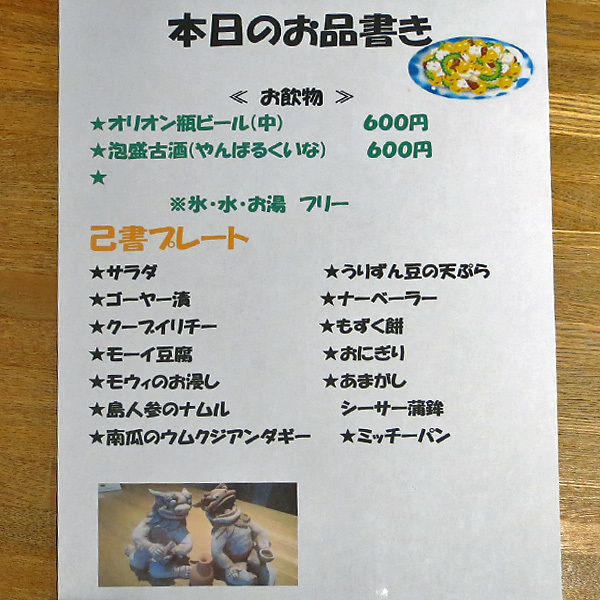 本日のお品書き
≪ お飲物 ≫
★オリオン瓶ビール(中) 600円
★泡盛古酒(やんばるくいな) 600円
★
※氷・水・お湯 フリー
己書プレート
★サラダ ★うりずん豆の天ぷら
★ゴーヤー漬 ★ナーベーラー
★クーブイリチー ★もずく餅
★モーイ豆腐 ★おにぎり
★モウィのお浸し ★あまがし
★島人参のナムル シーサー蒲鉾
★南瓜のウムクジアンダギー ★ミッチーパン